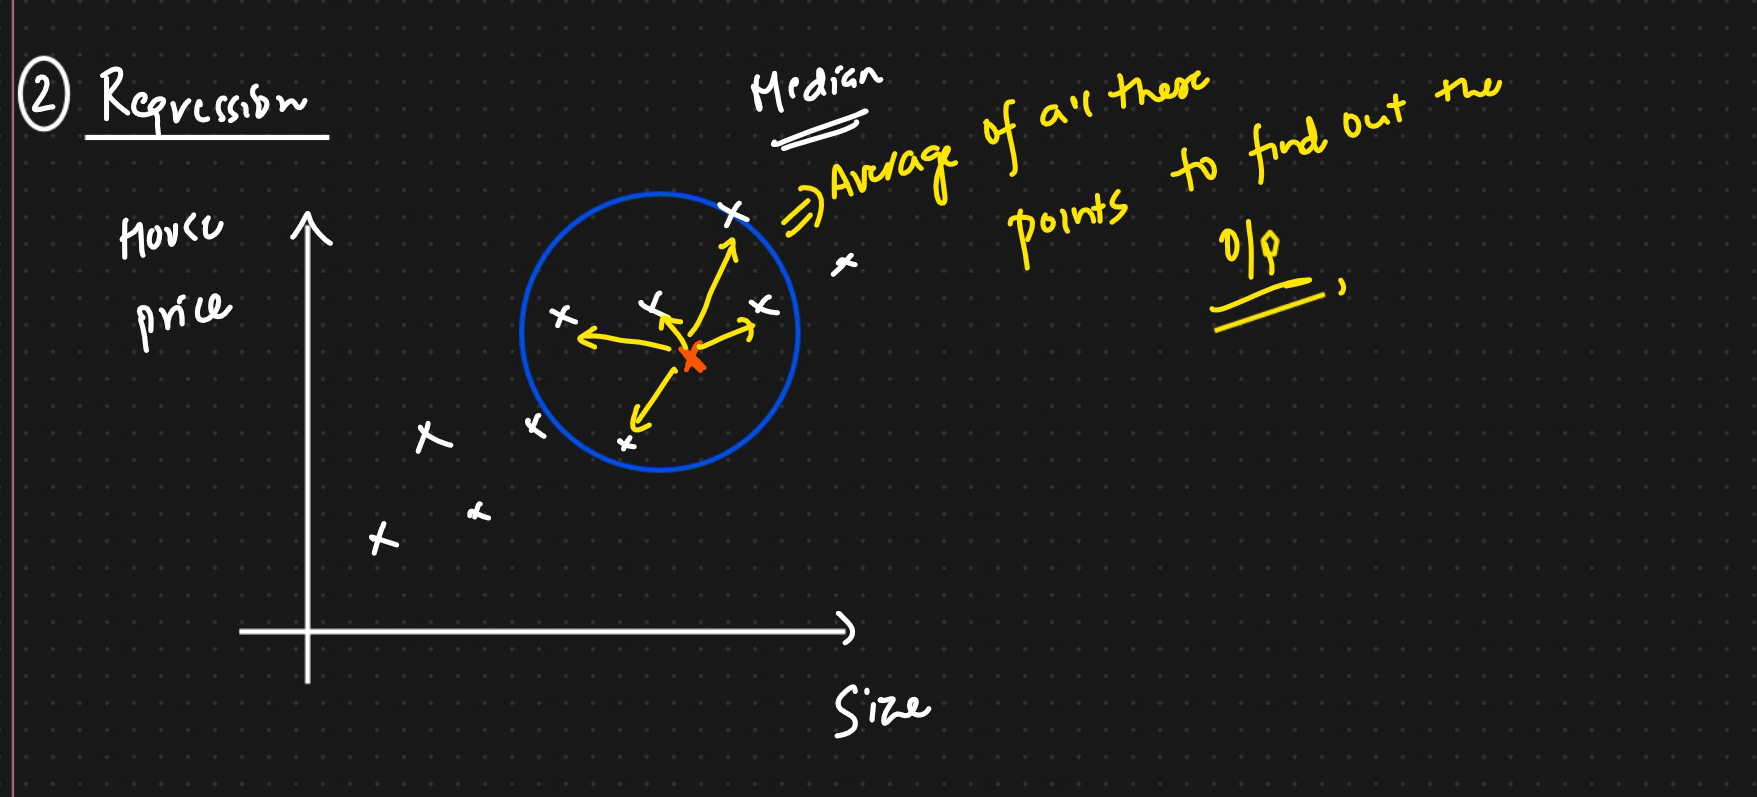 2 Regression
Median
⇒ Average of all these
points to find out the
O/p
House
price
Size